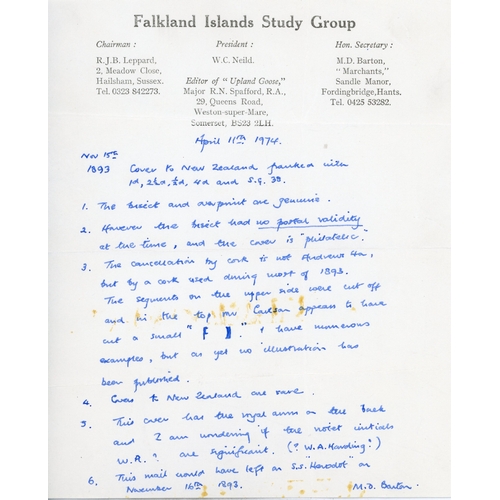 Falkland Islands Study Group
Chairman :
R.J.B. Leppard,
2, Meadow Close,
Hailsham, Sussex.
Tel. 0323 842273.
President :
W.C. Neild.
Editor of "Upland Goose,"
Major R.N. Spafford, R.A.,
29, Queens Road,
Weston-super-Mare,
Somerset, BS23 2LH.
Hon. Secretary :
M.D. Barton,
"Marchants,"
Sandle Manor,
Fordingbridge, Hants.
Tel. 0425 53282.
April 11th 1974.
Nov 15th
1893 Cover to New Zealand franked with
1d, 2½d, ½d, 4d and S.G. 38.
1. The bisect and overprint are genuine.
2. However the bisect had no postal validity
at the time, and the cover is "philatelic".
3. The cancellation by cork is not Andrews 4a,
but by a cork used during most of 1893.
The segments on the upper side were cut off
and in the top one Carlson appears to have
cut a small " F ". I have numerous
examples, but as yet no illustration has
been published.
4. Covers to New Zealand are rare.
5. This cover has the royal arms on the back
and I am wondering if the violet initials
W.R. are significant. (? W.A. Harding?)
6. This mail would have left on S.S. "Herodot" on
November 16th 1893.
M.D. Barton.